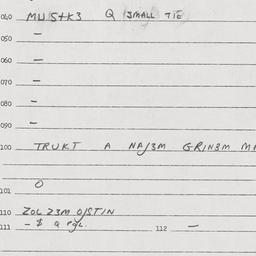 040 MU S+K3 Q SMALL TIE
050 —
060 —
070 —
080 —
090 —
100 TRUKT A NA/3M GRIN3M
0
101
110 ZOL23M O/STIN
111 - $ Q 112 —